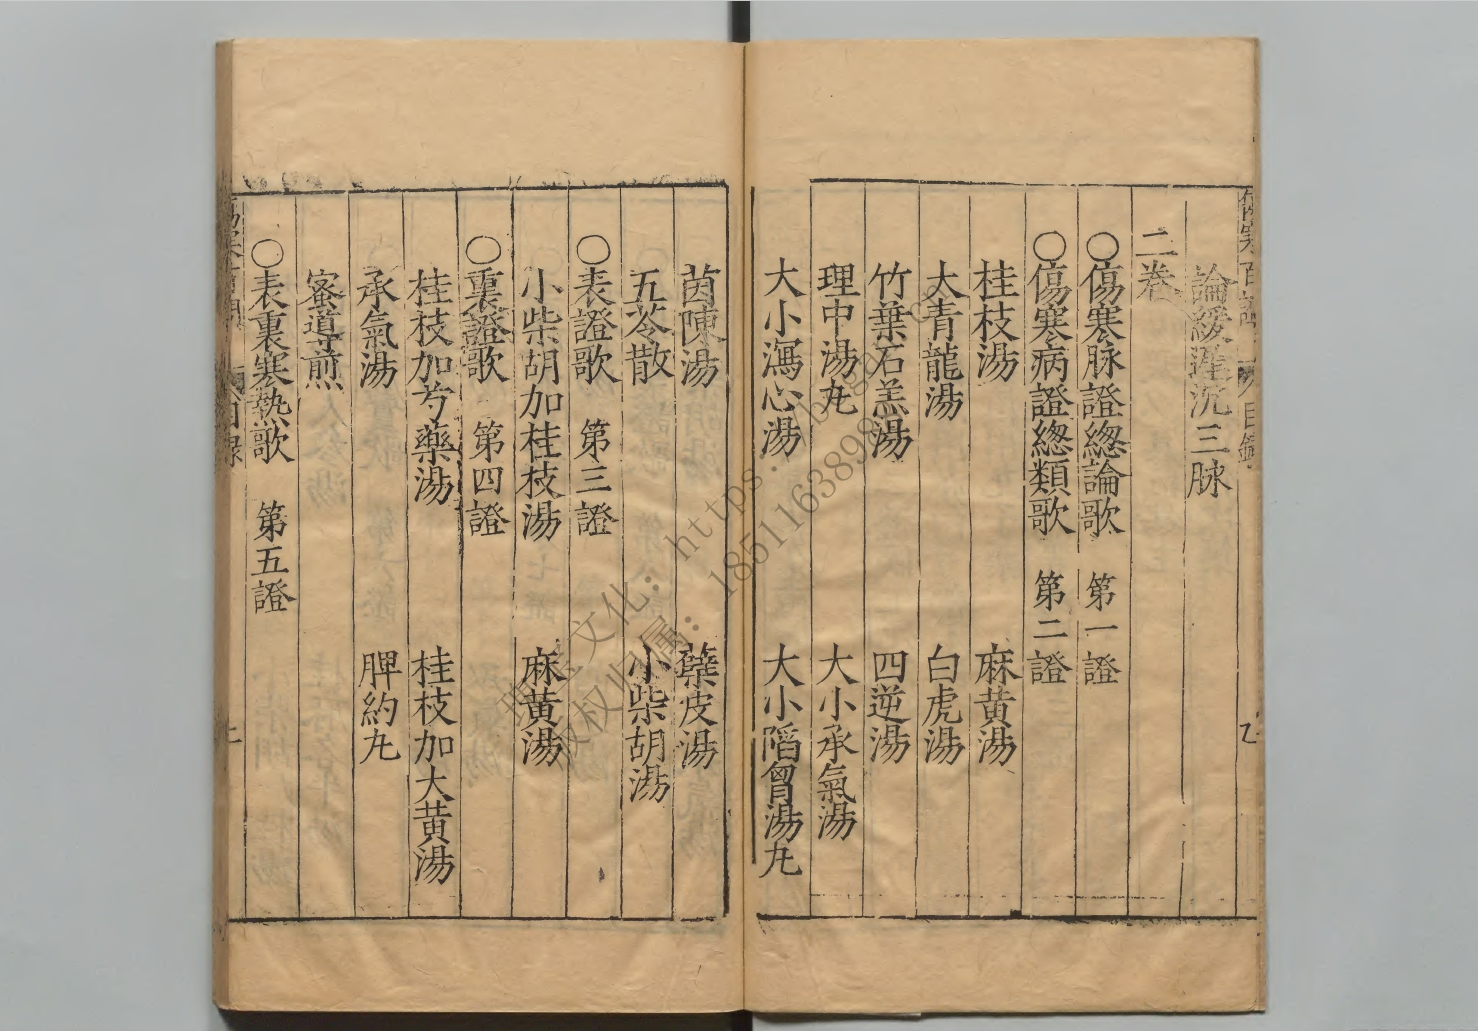 論緩遲沉三脉
二卷
○傷寒脉證緫論歌 第一證
○傷寒病證緫類歌 第二證
桂枝湯 麻黄湯
大青龍湯 白虎湯
竹葉石羔湯 四逆湯
理中湯丸 大小承氣湯
大小瀉心湯 大小陷胷湯丸
茵陳湯 蘗皮湯
五苓散 小柴胡湯
○表證歌 第三證
小柴胡加桂枝湯 麻黄湯
○裏證歌 第四證
桂枝加芍藥湯 桂枝加大黄湯
承氣湯 脾約丸
蜜導煎
○表裏寒熱歌 第五證
目録
1851163898